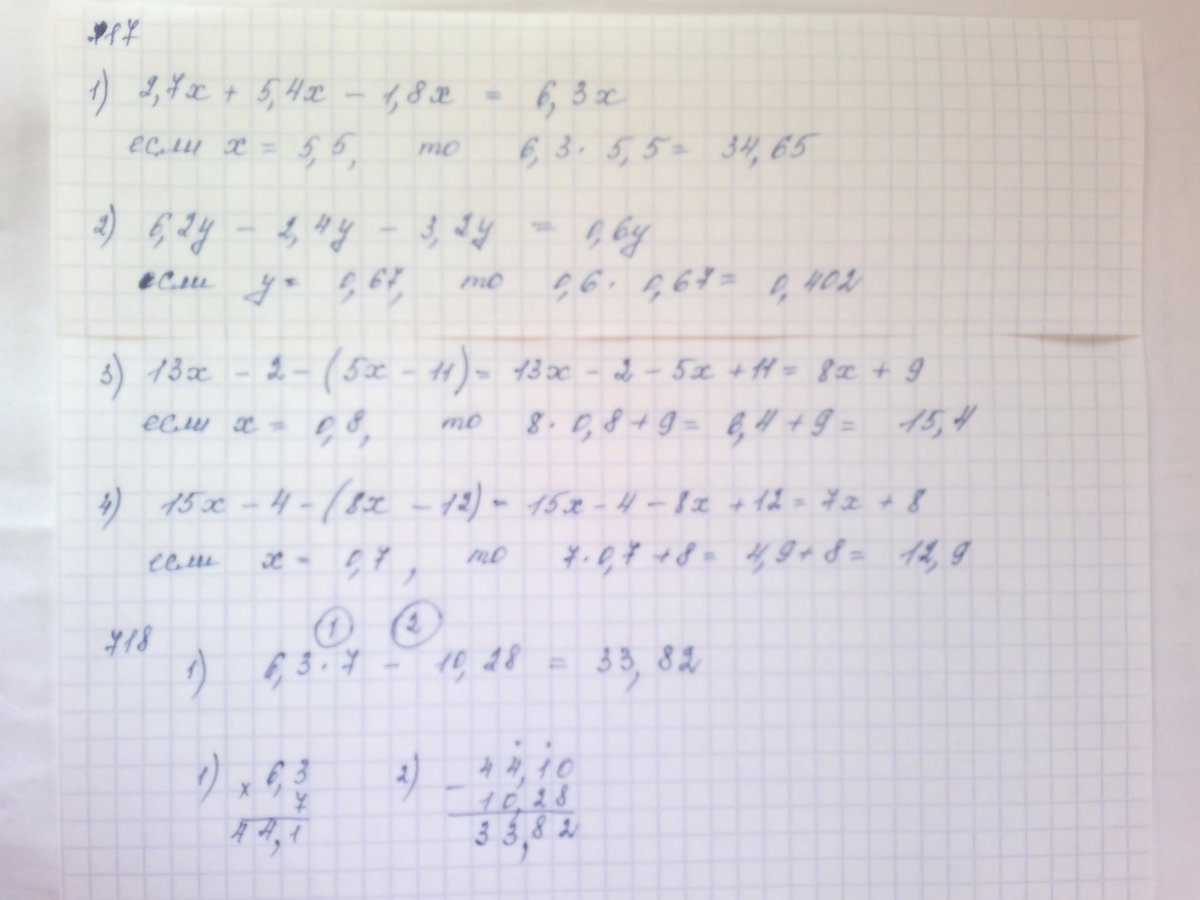 717
1) 2,7x + 5,4x - 1,8x = 6,3x
если x = 5,5, то 6,3 · 5,5 = 34,65
2) 6,2y - 2,4y - 3,2y = 0,6y
если y = 0,67, то 0,6 · 0,67 = 0,402
3) 13x - 2 - (5x - 11) = 13x - 2 - 5x + 11 = 8x + 9
если x = 0,8, то 8 · 0,8 + 9 = 6,4 + 9 = 15,4
4) 15x - 4 - (8x - 12) = 15x - 4 - 8x + 12 = 7x + 8
если x = 0,7, то 7 · 0,7 + 8 = 4,9 + 8 = 12,9
718
1 2
1) 6,3 · 7 - 10,28 = 33,82
1) × 6,3
7
44,1
2) - 44,10
10,28
33,82